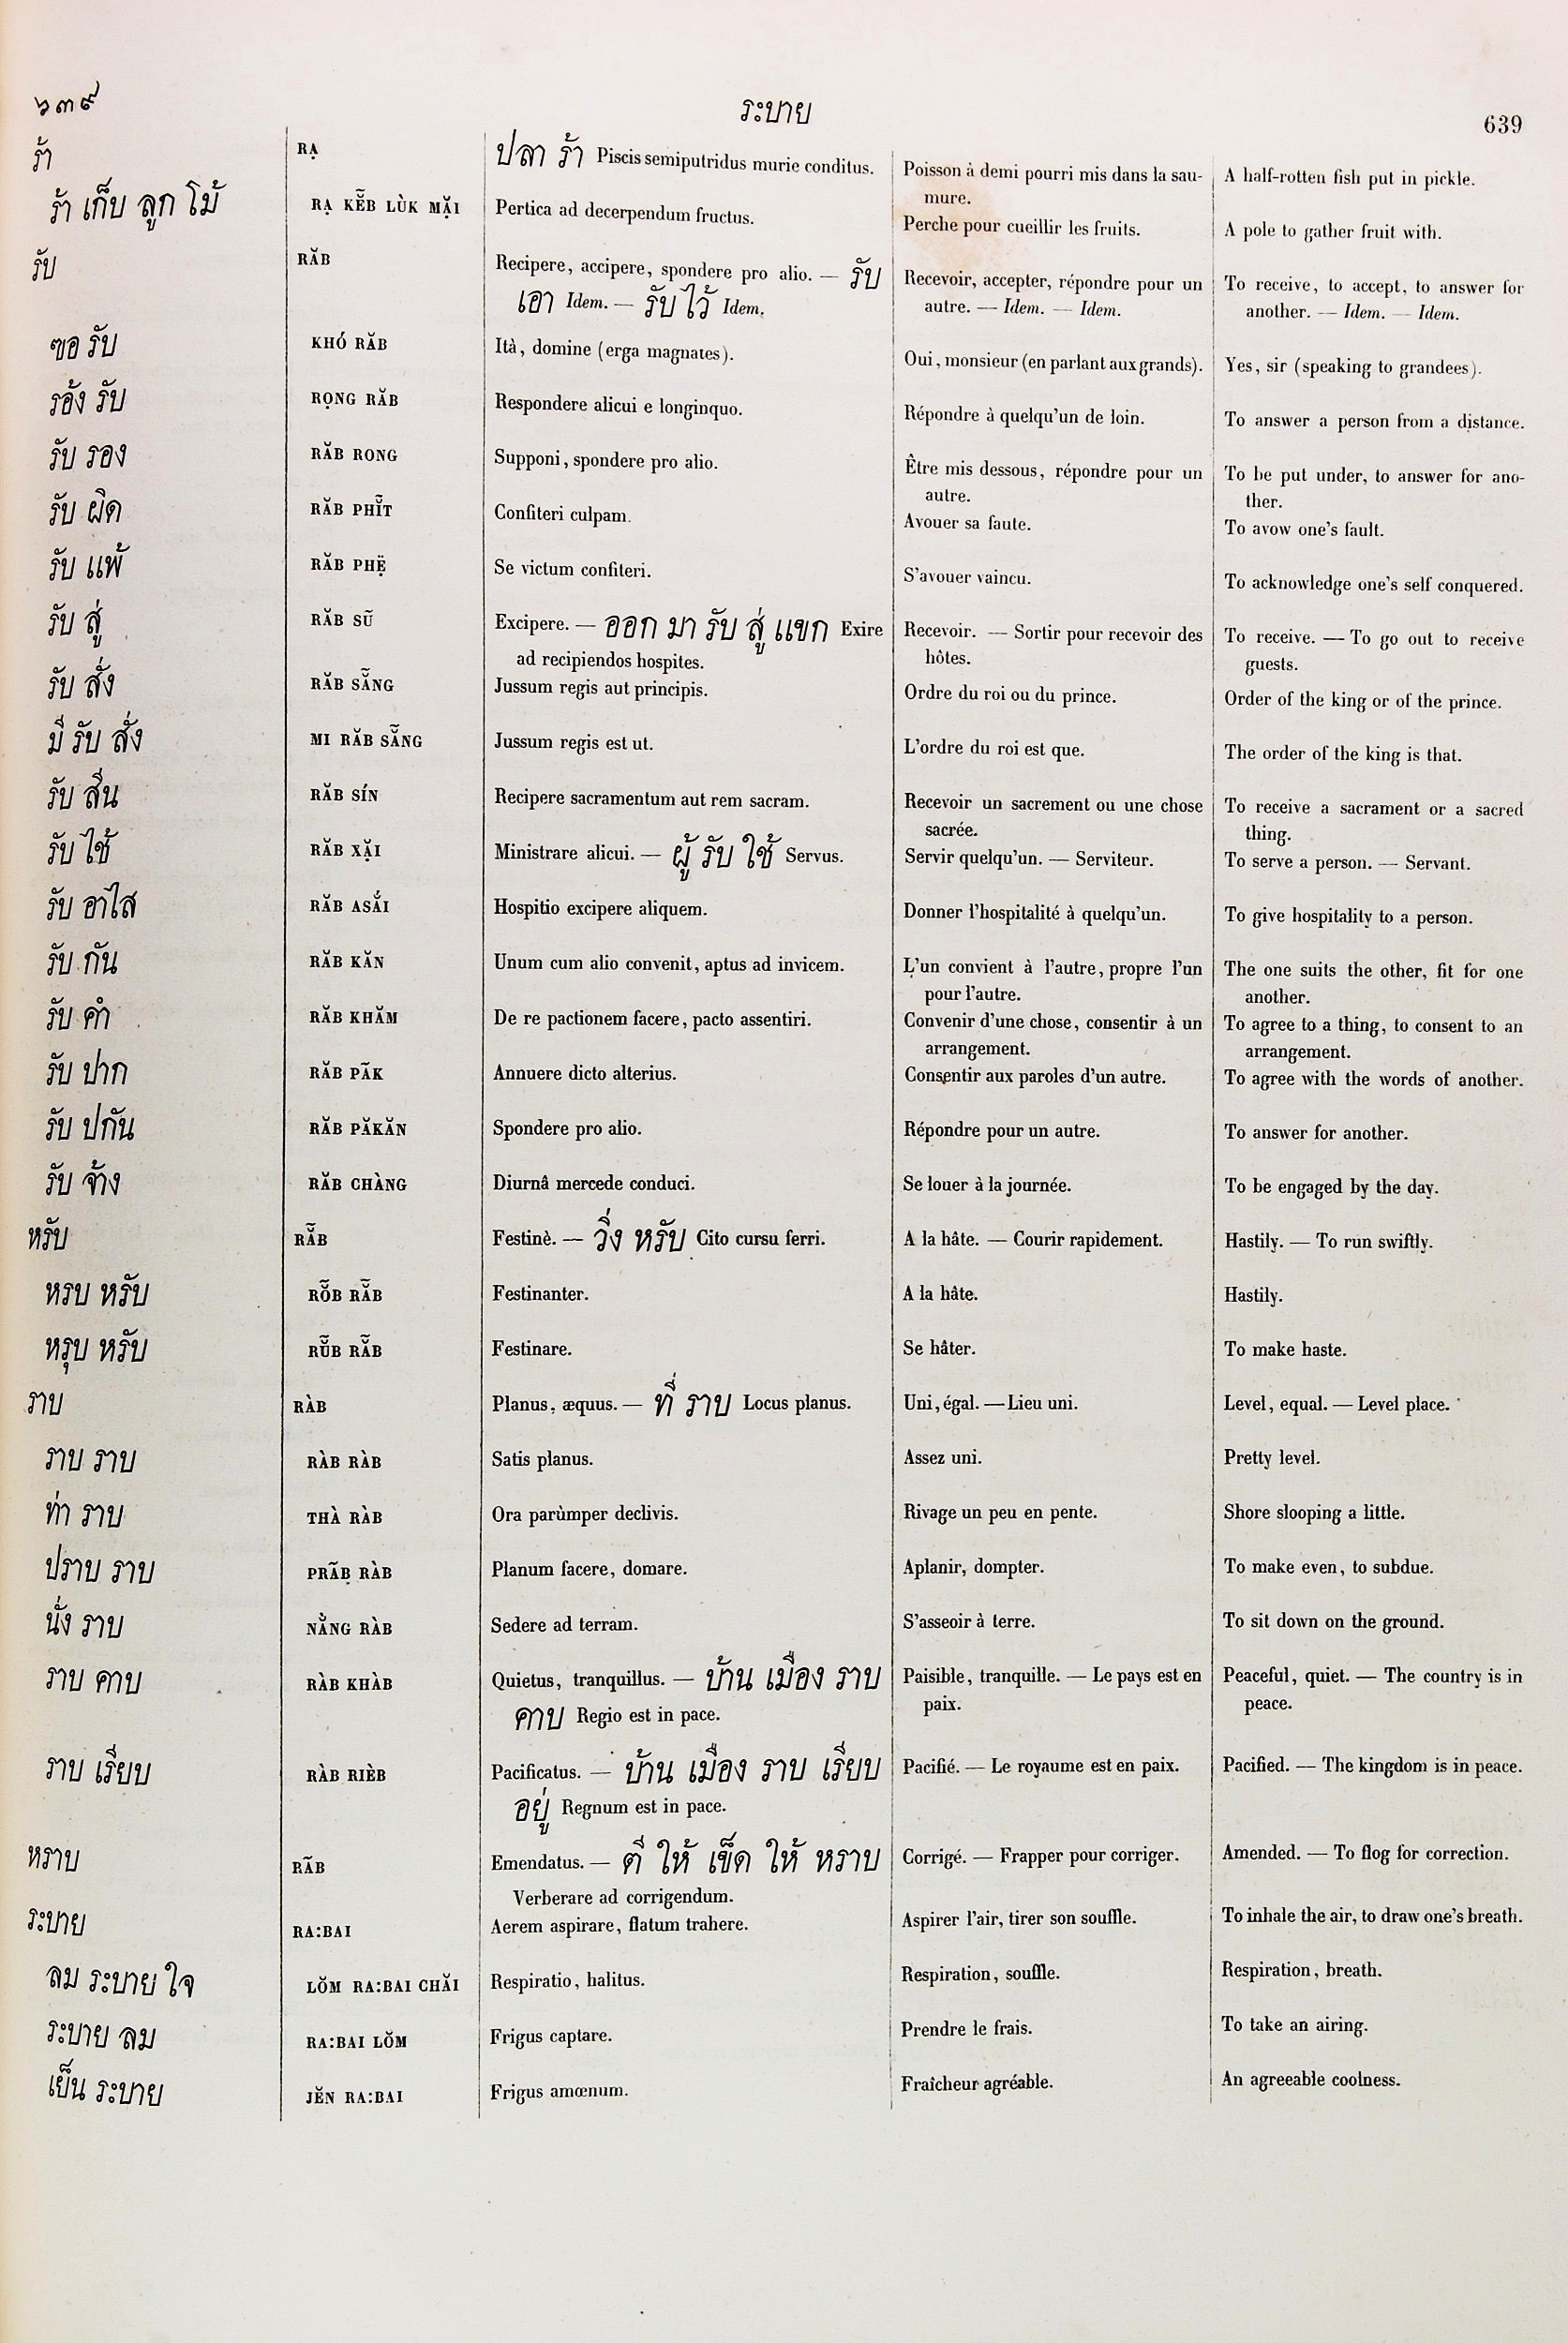 ๖๓๙ ระบาย 639
ร้า RẠ ปลา ร้า Piscis semiputridus murie conditus. Poisson à demi pourri mis dans la sau- A half-rotten fish put in pickle.
mure.
ร้า เก็บ ลูก โม้ RẠ KĔB LÙK MẶI Pertica ad decerpendum fructus. Perche pour cueillir les fruits. A pole to gather fruit with.
รับ RĂB Recipere, accipere, spondere pro alio. — รับ Recevoir, accepter, répondre pour un To receive, to accept, to answer for
เอา Idem. — รับ ไว้ Idem. autre. — Idem. — Idem. another. — Idem. — Idem.
ฃอ รับ KHÓ RĂB Ità, domine (erga magnates). Oui, monsieur (en parlant aux grands). Yes, sir (speaking to grandees).
รอ้ง รับ RỌNG RĂB Respondere alicui e longinquo. Répondre à quelqu'un de loin. To answer a person from a distance.
รับ รอง RĂB RONG Supponi, spondere pro alio. Être mis dessous, répondre pour un To be put under, to answer for ano-
autre. ther.
รับ ผิด RĂB PHĬ̃T Confiteri culpam. Avouer sa faute. To avow one's fault.
รับ แพ้ RĂB PHẸ̈ Se victum confiteri. S'avouer vaincu. To acknowledge one's self conquered.
รับ สู่ RĂB SŨ Excipere. — ออก มา รับ สู่ แขก Exire Recevoir. — Sortir pour recevoir des To receive. — To go out to receive
ad recipiendos hospites. hôtes. guests.
รับ สั่ง RĂB SẴNG Jussum regis aut principis. Ordre du roi ou du prince. Order of the king or of the prince.
มี รับ สั่ง MI RĂB SẴNG Jussum regis est ut. L'ordre du roi est que. The order of the king is that.
รับ สีน RĂB SÍN Recipere sacramentum aut rem sacram. Recevoir un sacrement ou une chose To receive a sacrament or a sacred
sacrée. thing.
รับ ไช้ RĂB XẶI Ministrare alicui. — ผู้ รับ ใช้ Servus. Servir quelqu'un. — Serviteur. To serve a person. — Servant.
รับ อาไส RĂB ASẮI Hospitio excipere aliquem. Donner l'hospitalité à quelqu'un. To give hospitality to a person.
รับ กัน RĂB KĂN Unum cum alio convenit, aptus ad invicem. L'un convient à l'autre, propre l'un The one suits the other, fit for one
pour l'autre. another.
รับ คำ RĂB KHĂM De re pactionem facere, pacto assentiri. Convenir d'une chose, consentir à un To agree to a thing, to consent to an
arrangement. arrangement.
รับ ปาก RĂB PÃK Annuere dicto alterius. Consentir aux paroles d'un autre. To agree with the words of another.
รับ ปกัน RĂB PĂKĂN Spondere pro alio. Répondre pour un autre. To answer for another.
รับ จ้าง RĂB CHÀNG Diurnâ mercede conduci. Se louer à la journée. To be engaged by the day.
หรับ RẴB Festinè. — วิ่ง หรับ Cito cursu ferri. A la hâte. — Courir rapidement. Hastily. — To run swiftly.
หรบ หรับ RŎ̃B RẴB Festinanter. A la hâte. Hastily.
หรุบ หรับ RŬ̃B RẴB Festinare. Se hâter. To make haste.
ราบ RÀB Planus, æquus. — ที่ ราบ Locus planus. Uni, égal. — Lieu uni. Level, equal. — Level place.
ราบ ราบ RÀB RÀB Satis planus. Assez uni. Pretty level.
ท่า ราบ THÀ RÀB Ora parùmper declivis. Rivage un peu en pente. Shore slooping a little.
ปราบ ราบ PRÃB RÀB Planum facere, domare. Aplanir, dompter. To make even, to subdue.
นั่ง ราบ NẰNG RÀB Sedere ad terram. S'asseoir à terre. To sit down on the ground.
ราบ คาบ RÀB KHÀB Quietus, tranquillus. — บ้าน เมือง ราบ Paisible, tranquille. — Le pays est en Peaceful, quiet. — The country is in
คาบ Regio est in pace. paix. peace.
ราบ เรียบ RÀB RIÈB Pacificatus. — บ้าน เมือง ราบ เรียบ Pacifié. — Le royaume est en paix. Pacified. — The kingdom is in peace.
อยู่ Regnum est in pace.
หราบ RÃB Emendatus. — ตี ให้ เข็ด ให้ หราบ Corrigé. — Frapper pour corriger. Amended. — To flog for correction.
Verberare ad corrigendum.
ระบาย RA:BAI Aerem aspirare, flatum trahere. Aspirer l'air, tirer son souffle. To inhale the air, to draw one's breath.
ลม ระบาย ใจ LŎM RA:BAI CHĂI Respiratio, halitus. Respiration, souffle. Respiration, breath.
ระบาย ลม RA:BAI LŎM Frigus captare. Prendre le frais. To take an airing.
เย็น ระบาย JĔN RA:BAI Frigus amœnum. Fraîcheur agréable. An agreeable coolness.